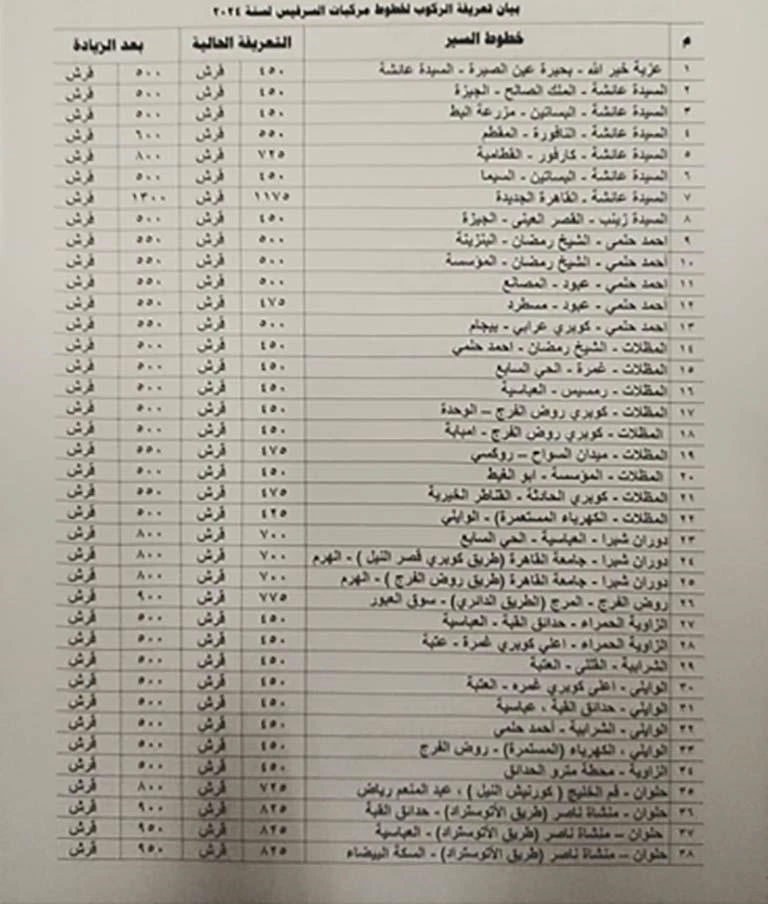 بيان تعريفة الركوب لخطوط مركبات السرفيس لسنة ٢٠٢٤
م خطوط السير التعريفة الحالية بعد الزيادة
١ عزبة خير الله - بحيرة عين الصيرة - السيدة عائشة ٤٥٠ قرش ٥٠٠ قرش
٢ السيدة عائشة - الملك الصالح - الجيزة ٤٥٠ قرش ٥٠٠ قرش
٣ السيدة عائشة - البساتين - مزرعة البط ٤٥٠ قرش ٥٠٠ قرش
٤ السيدة عائشة - النافورة - المقطم ٥٥٠ قرش ٦٠٠ قرش
٥ السيدة عائشة - كارفور - القطامية ٧٢٥ قرش ٨٠٠ قرش
٦ السيدة عائشة - البساتين - السيما ٤٥٠ قرش ٥٠٠ قرش
٧ السيدة عائشة - القاهرة الجديدة ١١٧٥ قرش ١٣٠٠ قرش
٨ السيدة زينب - القصر العينى - الجيزة ٤٥٠ قرش ٥٠٠ قرش
٩ احمد حلمي - الشيخ رمضان - البنزينة ٥٠٠ قرش ٥٥٠ قرش
١٠ احمد حلمي - الشيخ رمضان - المؤسسة ٥٠٠ قرش ٥٥٠ قرش
١١ احمد حلمي - عبود - المصانع ٥٠٠ قرش ٥٥٠ قرش
١٢ احمد حلمي - عبود - مسطرد ٤٧٥ قرش ٥٥٠ قرش
١٣ احمد حلمي - كوبري عرابي - بيجام ٥٠٠ قرش ٥٥٠ قرش
١٤ المظلات - الشيخ رمضان - احمد حلمي ٤٥٠ قرش ٥٠٠ قرش
١٥ المظلات - غمرة - الحي السابع ٤٥٠ قرش ٥٠٠ قرش
١٦ المظلات - رمسيس - العباسية ٤٥٠ قرش ٥٠٠ قرش
١٧ المظلات - كوبري روض الفرج – الوحدة ٤٥٠ قرش ٥٠٠ قرش
١٨ المظلات - كوبري روض الفرج - امبابة ٤٥٠ قرش ٥٠٠ قرش
١٩ المظلات - ميدان السواح – روكسي ٤٧٥ قرش ٥٥٠ قرش
٢٠ المظلات - المؤسسة - ابو الغيط ٤٥٠ قرش ٥٠٠ قرش
٢١ المظلات - كوبري الحادثة - القناطر الخيرية ٤٧٥ قرش ٥٥٠ قرش
٢٢ المظلات - الكهرباء المستعمرة) - الوايلي ٤٢٥ قرش ٥٠٠ قرش
٢٣ دوران شبرا - العباسية - الحي السابع ٧٠٠ قرش ٨٠٠ قرش
٢٤ دوران شبرا - جامعة القاهرة (طريق كوبري قصر النيل ) - الهرم ٧٠٠ قرش ٨٠٠ قرش
٢٥ دوران شبرا - جامعة القاهرة (طريق روض الفرج ) - الهرم ٧٠٠ قرش ٨٠٠ قرش
٢٦ روض الفرج - المرج (الطريق الدائري) - سوق العبور ٧٧٥ قرش ٩٠٠ قرش
٢٧ الزاوية الحمراء - حدائق القبة - العباسية ٤٥٠ قرش ٥٠٠ قرش
٢٨ الزاوية الحمراء - اعلي كوبري غمرة - عتبة ٤٥٠ قرش ٥٠٠ قرش
٢٩ الشرابية - القللى - العتبة ٤٥٠ قرش ٥٠٠ قرش
٣٠ الوايلى - اعلى كوبري غمره - العتبة ٤٥٠ قرش ٥٠٠ قرش
٣١ الوايلي - حدائق القبة ، عباسية ٤٥٠ قرش ٥٠٠ قرش
٣٢ الوايلى - الشرابية - أحمد حلمى ٤٥٠ قرش ٥٠٠ قرش
٣٣ الوايلي ، الكهرباء (المستمرة) - روض الفرج ٤٥٠ قرش ٥٠٠ قرش
٣٤ الزاوية - محطة مترو الحدائق ٤٥٠ قرش ٥٠٠ قرش
٣٥ حلوان - فم الخليج ( كورنيش النيل ) ، عبد المنعم رياض ٧٢٥ قرش ٨٠٠ قرش
٣٦ حلوان - منشاة ناصر (طريق الأتوستراد) - حدائق القبة ٨٢٥ قرش ٩٠٠ قرش
٣٧ حلوان – منشاة ناصر (طريق الأتوستراد) - العباسية ٨٢٥ قرش ٩٥٠ قرش
٣٨ حلوان – منشاة ناصر (طريق الأتوستراد) - السكة البيضاء ٨٢٥ قرش ٩٥٠ قرش